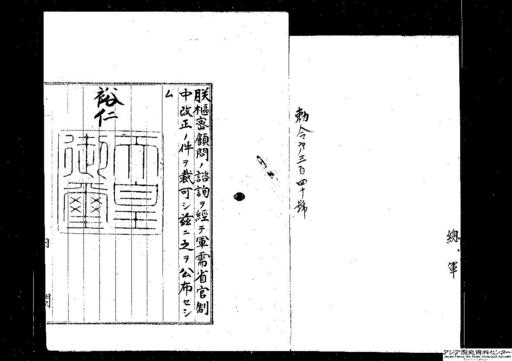 総、軍
勅令第三百四十號
朕樞密顧問ノ諮詢ヲ經テ軍需省官制
中改正ノ件ヲ裁可シ茲ニ之ヲ公布セシ
ム
裕仁
天皇
御璽
内閣
アジア歴史資料センター